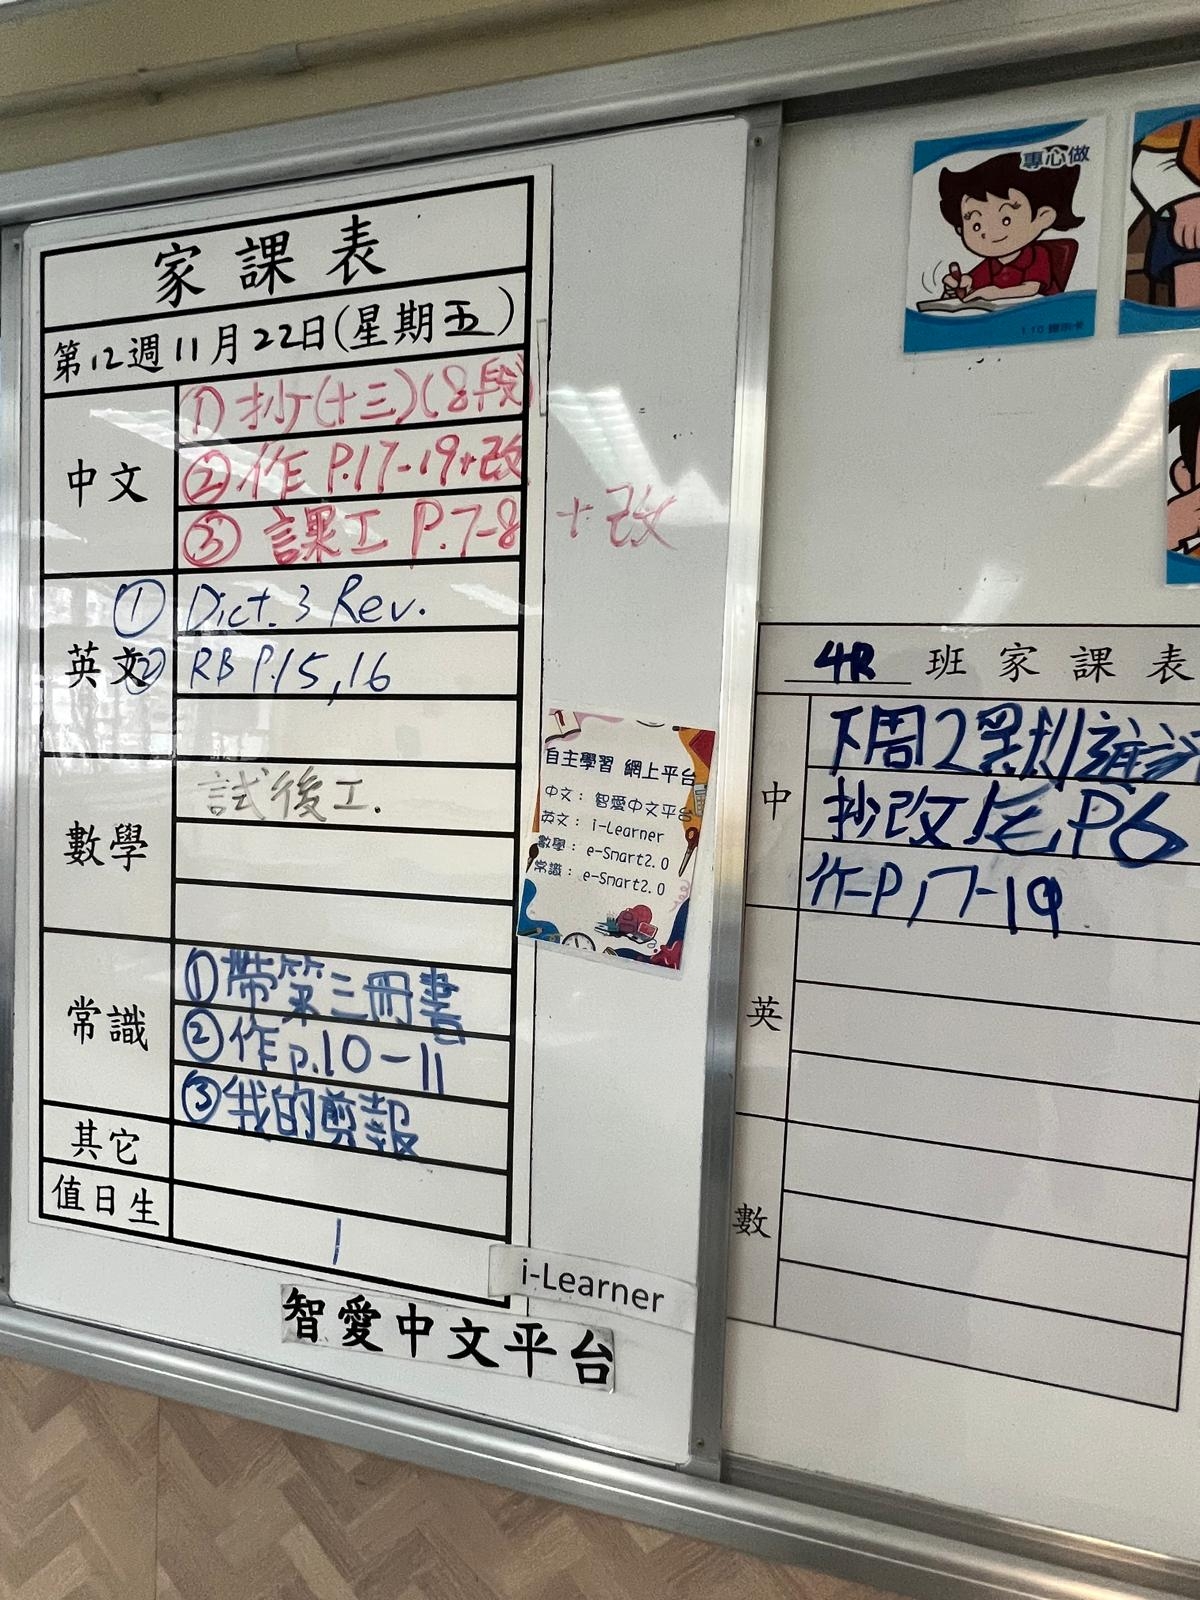 家課表
第12週11月22日(星期五)
中文
①抄(十三)(8段
②作 P.17-19+改
③ 課工 P.7-8 +改
英文
① Dict. 3 Rev.
② RB P.15,16
數學
試後工.
常識
①帶第三冊書
②作p.10-11
③我的剪報
其它
值日生
1
i-Learner
智愛中文平台
自主學習 網上平台
中文：智愛中文平台
英文：i-Learner
數學：e-Smart2.0
常識：e-Smart2.0
專心做
110提示卡
4R 班家課表
中
下周2
抄改 P6
作P17-19
英
數